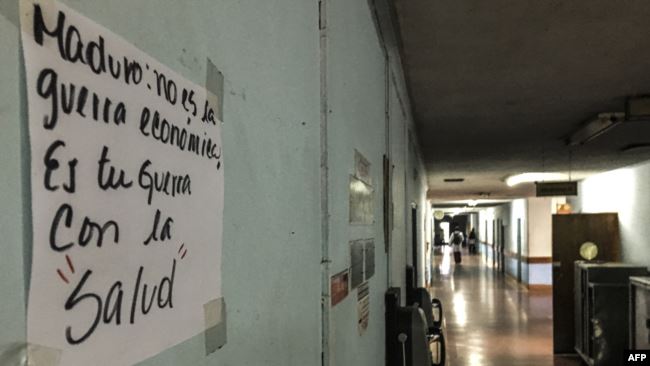 Maduro: no es la
guerra económica,
Es tu Guerra
Con la
"Salud"
AFP